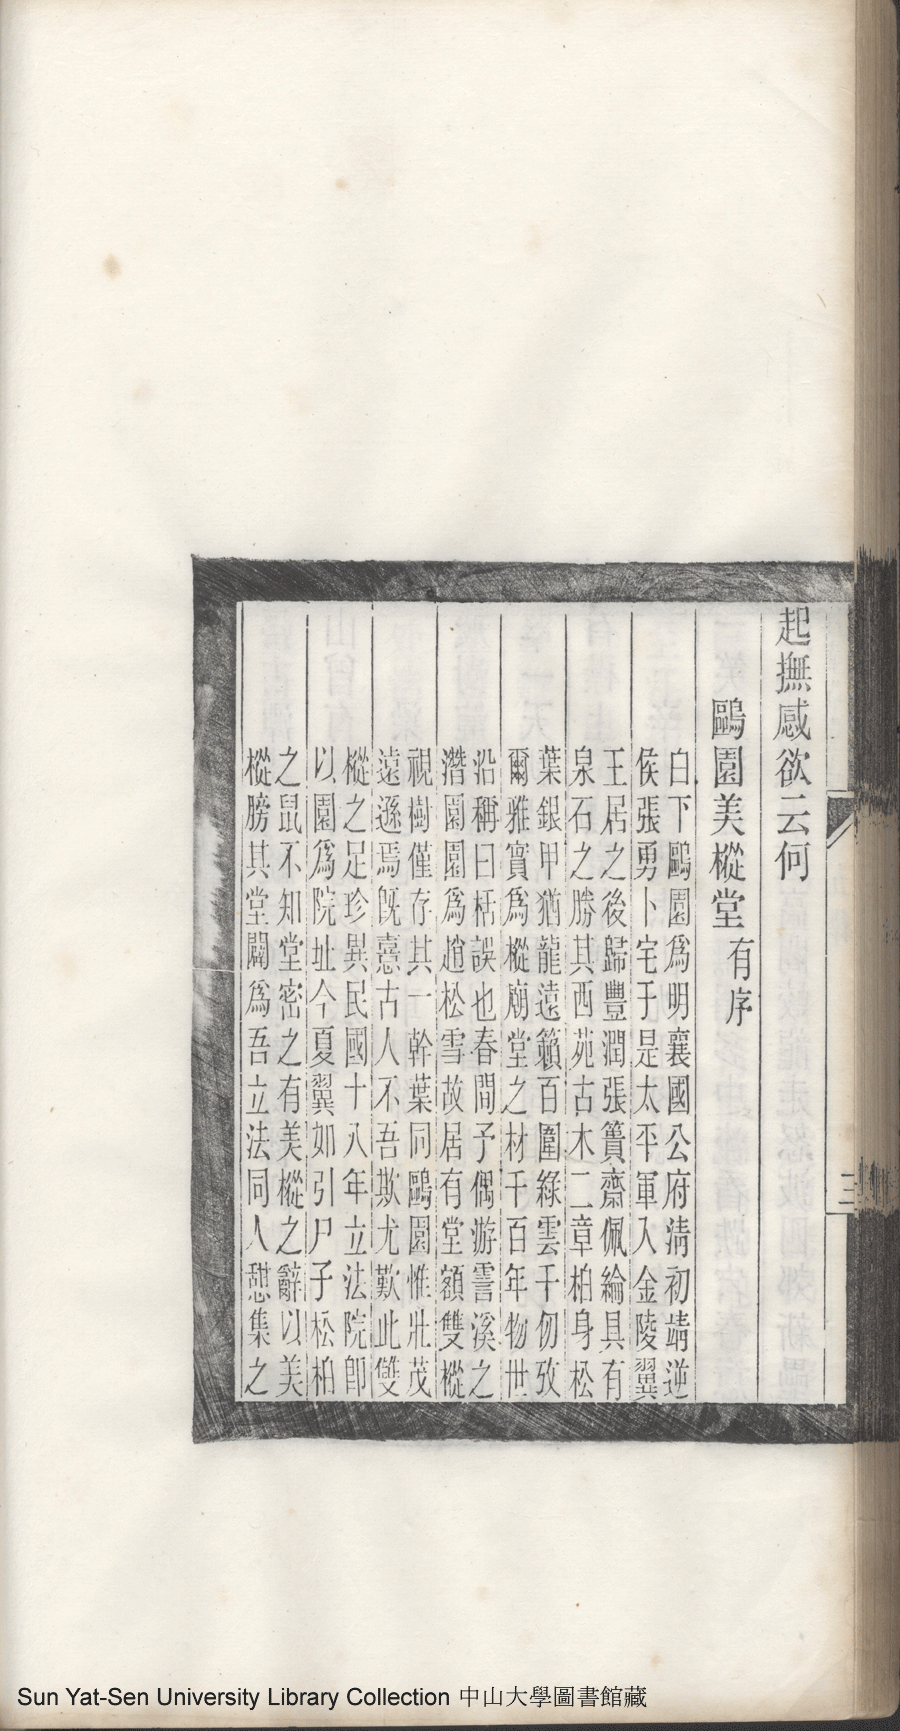 起撫感欲云何
鷗園美樅堂有序
白下鷗園爲明襄國公府淸初靖逆
侯張勇卜宅于是太平軍入金陵翼
王居之後歸豐潤張簣齋佩綸具有
泉石之勝其西苑古木二章柏身松
葉銀甲猶龍遠籟百圍綠雲千仞攷
爾雅實爲樅廟堂之材千百年物世
沿稱曰栝誤也春間予偶游霅溪之
濳園園爲趙松雪故居有堂額雙樅
視樹僅存其一幹葉同鷗園惟壯茂
遠遜焉旣憙古人不吾欺尤歎此雙
樅之足珍異民國十八年立法院卽
以園爲院址今夏翼如引尸子松柏
之鼠不知堂密之有美樅之辭以美
樅牓其堂闢爲吾立法同人憇集之
三
Sun Yat-Sen University Library Collection 中山大學圖書館藏